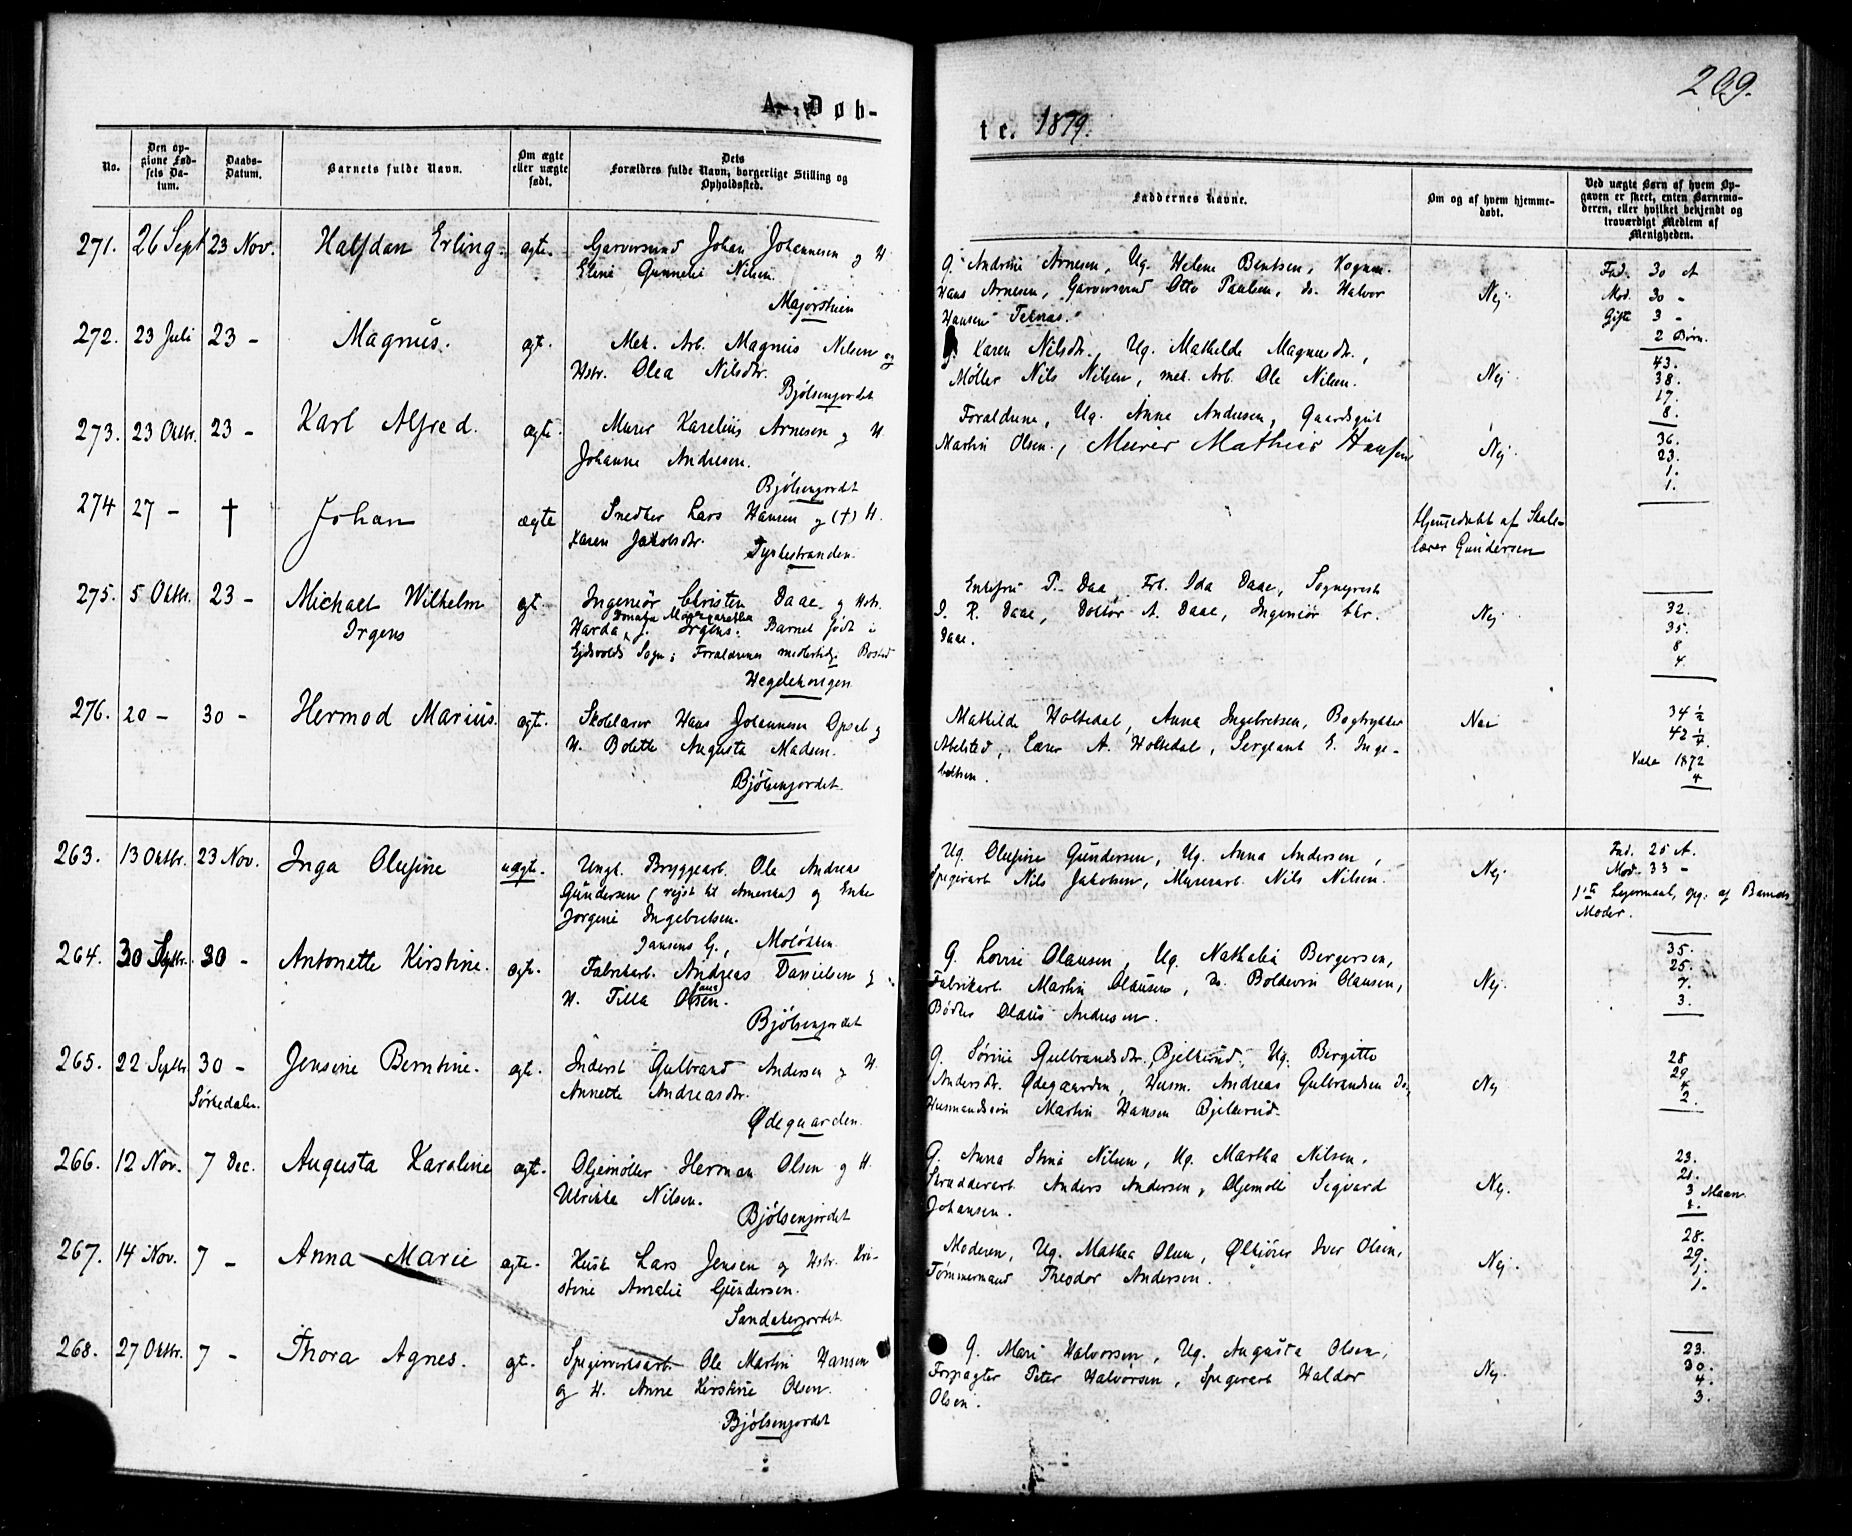 209.
A. Døb-
te. 1879.
No.
Den op-
givne Fød-
sels Da-
tum.
Daabs-
Datum.
Barnets fulde Navn.
Om ægte
eller uægte
født.
Dets
Forældres fulde Navn, borgerlige Stilling og
Opholdssted.
Faddernes Navne.
Om og af hvem hjemme-
døbt.
Ved uægte Børn af hvem Op-
gaven er skeet, enten Barnemo-
deren, eller hvilket bekjendt og
troværdigt Medlem af
Menigheden.
271. 26 Sept 23 Nov. Halfdan Erling. ægte. Garversvend Johan Johannesen og H.
Elene Gunnelie Nilsen.
Majorstuen
G. Andrine Arnesen, Ug. Helene Bentsen,
Hans Arnesen, Garversvend Otto Paulsen, do. Halvor
Hansen
Nej.
Fad. 30 A
Mod. 30 -
Gift 3 -
2 Børn.
272. 23 Juli 23 - Magnus. ægt. Mek. Arb. Magnus Nilsen og
Hstr. Olea Nilsdtr.
Bjølsenjordet
G. Karen Nilsdtr., Ug. Mathilde Magnusdtr.,
Møller Nils Nilsen, mek. Arb. Ole Nilsen.
Nej.
43.
38.
17.
8.
273. 23 Oktbr. 23 - Karl Alfred. ægte. Murer Karelius Arnesen og H.
Johanne Andresen.
Bjølsenjordet
Forældrene, Ug. Anne Andersen, Gaardsgut
Martin Olsen, Murer Mathias Hansen
Nej.
36.
23.
1.
1.
274 27 - † Johan ægte Snedker Lars Hansen og (†) H.
Karen Jakobsdtr.
Tyskestranden.
Hjemmedøbt af Skole-
lærer Gundersen
275. 5 Oktbr. 23 - Michael Wilhelm
Irgens
ægt. Ingeniør Christen Daae og Hstr.
Donata Margaretha
Harda J. Irgens. Barnet født i
Ejdsvolds Sogn; Forældrenes midlertidige Bosted
Hegdehougen
Enkefru P. Daa, Frk. Ida Daae, Sogneprest
I. R. Daae, Doktor A. Daae, Ingeniør Chr.
Daae.
Nej
32.
35.
8
4.
276. 20 - 30 - Hermod Marius. ægt. Skolelærer Hans Johannesen Opsal og
H. Bolette Augusta Madsen.
Bjølsenjordet.
Mathilde Holtedal, Anna Ingebretsen, Bogtrykker
Abelsted, Lærer A. Holtedal, Sergeant E. Inge-
bretsen.
Nei
34 ½
42 ¼
1872
4
263. 13 Oktbr. 23 Nov. Inga Olufine uægte. Ungk. Bryggearb. Ole Andreas
Gundersen (rejst til Amerika) og Enke
Jørgine Ingebretsen.
Jansens G., Moløkken
Ug. Olufine Gundersen, Ug. Anna Andersen,
Spigerarb Nils Jakobsen, Murerarb. Nils Nilsen.
Nej.
Fad. 25 A.
Mod. 33 -
1ste Lejermaal, opg. af Barnets
Moder.
264. 30 Septbr. 30 - Antonette Kirstine. ægte. Fabrikarb. Andreas Danielsen og
H. Tilla Olsen.
Bjølsenjordet
G. Lovise Olausen, Ug. Nathalia Bergersen,
Fabrikarb. Martin Olausen, Do. Boldevin Olausen,
Bødker Olaus Andresen.
Nej.
35.
25.
7.
3.
265. 22 Septbr 30 -
Sørkedalen.
Jensine Berntine. ægt. Inderst Gulbrand Andersen og H.
Annette Andreasdtr.
Ødegaarden.
G. Sørine Gulbrandsdtr. Bjelkerud, Ug. Bergitte
Andersdtr. Ødegaarden, Husm. Andreas Gulbrandsen Do,
Husmandssøn Martin Hansen Bjelkerud.
Nej
28
29
4
2.
266. 12 Nov. 7 Dec. Augusta Karoline ægt. Oljemøller Herman Olsen og H.
Ulrikke Nilsen.
Bjølsenjordet
G. Anna Stina Nilsen, Ug. Martha Nilsen,
Skrædderarb. Anders Andersen, Oljemølle Sigvard
Johansen.
Nej.
23.
21.
3 Maan.
1.
267. 14 Nov. 7 - Anna Marie ægte. Kusk Lars Jensen og Hstr. Kri-
stine Amalie Gundersen.
Sandakerjordet.
Moderen, Ug. Mathea Olsen, Ølkjører Iver Olsen,
Tømmermand Theodor Andersen.
Nej.
28.
29.
1.
1.
268. 27 Oktbr. 7 - Thora Agnes. ægt. Spigerverksarb Ole Martin Hansen
og H. Anne Kirstine Olsen.
Bjølsenjordet
G. Mari Halvorsen, Ug. Augusta Olsen,
Forpagter Peter Halvorsen, Spigerarb Haldor
Olsen.
Nej.
23.
30.
4.
3.